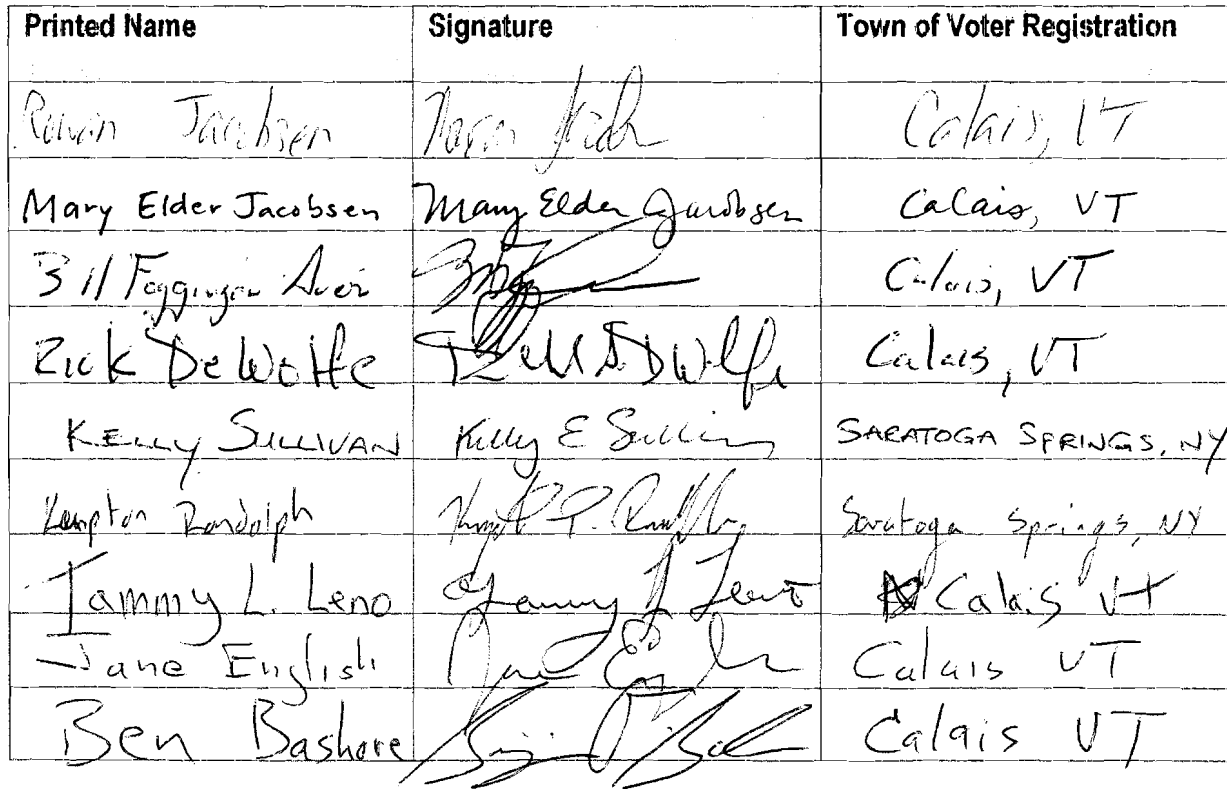 Printed Name Signature Town of Voter Registration
Rowan Jacobsen Calais, VT
Mary Elder Jacobsen Mary Elder Jacobsen Calais, VT
Bill Calais, VT
Rick DeWolfe DWolfe Calais, VT
KELLY SULLIVAN Kelly E Sullivan SARATOGA SPRINGS, NY
Kempton Randolph Saratoga Springs, NY
Tammy L. Leno Tammy L Leno Calais Vt
Jane English Jane Calais VT
Ben Bashore Calais VT